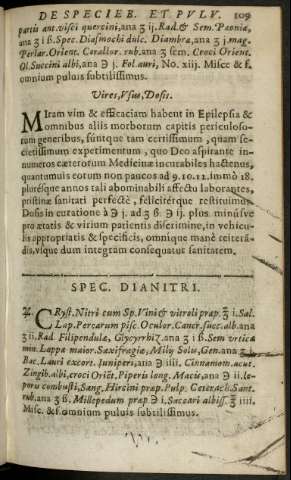 DE SPECIEB. ET PVLV. 109
partis ant. visci quercini, ana ʒ ij. Rad. & Sem. Pæoniæ,
ana ʒ i ß. Spec. Diamoschi dulc. Diambræ, ana ʒ j. mag.
Perlar. Orient. Corallor. rub. ana ʒ sem. Croci Orient.
Ol. Succini albi, ana ℈ j. Fol. auri, No. xiij. Misce & f.
omnium puluis subtilissimus.
Vires, Vsus, Dosis.
MIram vim & efficaciam habent in Epilepsia &
omnibus aliis morborum capitis periculoso-
rum generibus, suntque tam certissimum, quam se-
cretissimum experimentum, quo Deo aspirante in-
numeros cæterorum Medicinæ incurabiles hactenus,
quantumuis eorum non paucos ad 9. 10. 12. immò 18.
pluresque annos tali abominabili affectu laborantes,
pristinæ sanitati perfectè, feliciterque restituimus.
Dosis in curatione à ℈ j. ad ʒ ß. ij. plus. minúsve
pro ætatis & virium patientis discrimine, in vehicu-
lis appropriatis & specificis, omnique manè reiterã-
dis, vsque dum integram consequatur sanitatem.
SPEC. DIANITRI.
♃. CRyst. Nitri cum Sp. Vini & vitrioli præp. ℥ i. Sal.
Lap. Percarum pisc. Oculor. Cancr. succ. alb. ana
ʒ ii. Rad. Filipendulæ, Glycyrhiz. ana ʒ i ß. Sem vrticæ
min. Lappæ maior. Saxifragiæ, Milij Solis, Gen. ana
Bac. Lauri excort. Juniperi, ana ℈ iiii. Cinnamom. acut.
Zingib. albi, croci Oriẽt. Piperis long. Macis, ana ℈ ii. le-
poris combusti, Sang. Hircini præp. Pulp. Ceterach. Sant.
rub. ana ʒ ß. Millepedum præp. ℈ i. Sacchari albiss. ℥ iiii.
Misc. & f. omnium puluis subtilissimus.